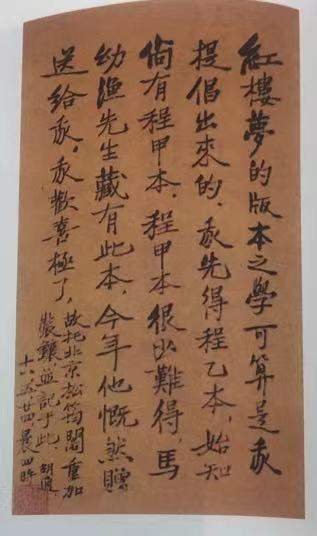 紅樓夢的版本之學可算是我
提倡出來的．我先得程乙本，始知
尚有程甲本．程甲本很少難得，馬
幼漁先生藏有此本，今年他慨然贈
送給我．我歡喜極了，
故托北京松筠閣重加
裝鑲並記于此．胡適
十六、五、廿四、晨四時